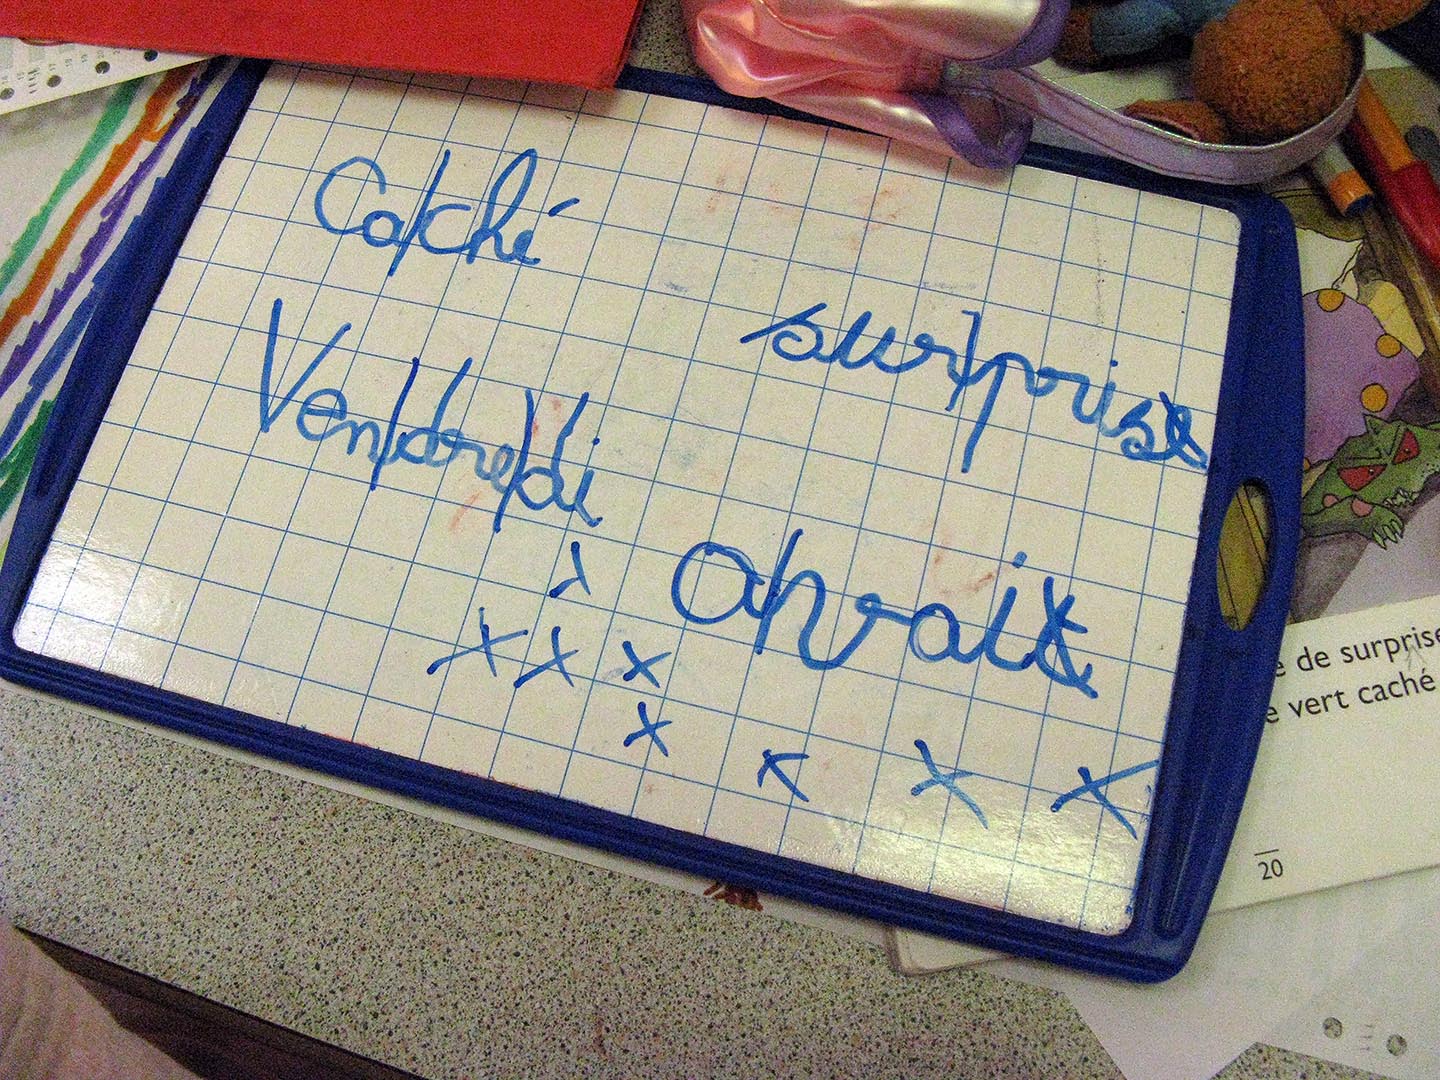 Ca/ché
sur/prise
Ven/dre/di
a/vait
x
x x x
x x x x
e de surprise
e vert caché
20